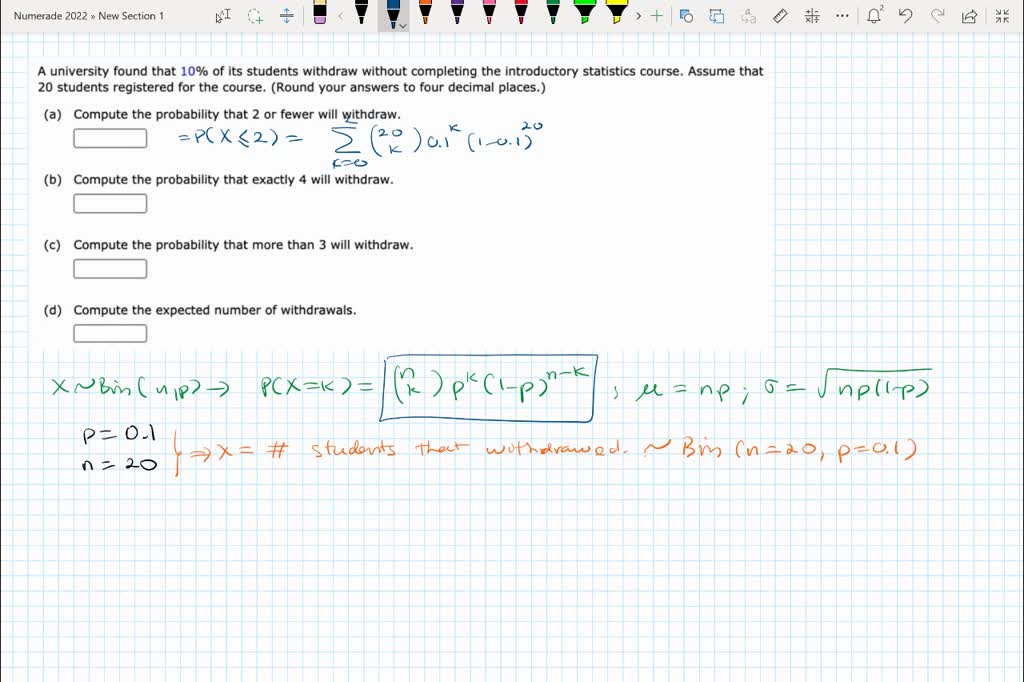 Numerade 2022 » New Section 1
A university found that 10% of its students withdraw without completing the introductory statistics course. Assume that
20 students registered for the course. (Round your answers to four decimal places.)
(a) Compute the probability that 2 or fewer will withdraw.
= P(X ≤ 2) = 2 Σ k=0 (20 k) 0.1^k (1-0.1)^20
(b) Compute the probability that exactly 4 will withdraw.
(c) Compute the probability that more than 3 will withdraw.
(d) Compute the expected number of withdrawals.
X ~ Bin(n,p) → P(X=k) = (n k) p^k (1-p)^n-k ; μ = np ; σ = √np(1-p)
p = 0.1
n = 20
⇒ X = # students that withdrawed. ~ Bin (n=20, p=0.1)